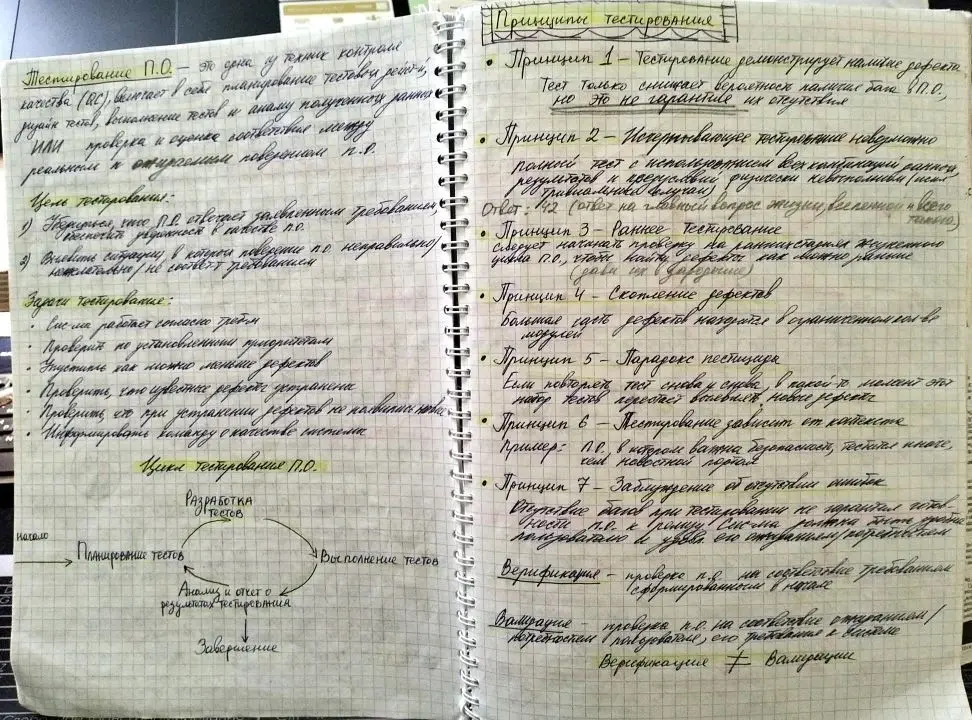 Тестирование П.О. – это одна из техник контроля
качества (QC), включает в себя планирование тестовых действий,
дизайн тестов, выполнение тестов и анализ полученных данных
ИЛИ проверка и оценка соответствия между
реальным и ожидаемым поведением П.О.
Цель тестирования:
1) Убедиться, что П.О. отвечает заявленным требованиям,
обеспечить уверенность в качестве П.О.
2) Выявить ситуации, в которой поведение П.О. неправильно/
нежелательно/не соотв-т требованиям
Задачи тестирования:
• Сис-ма работает согласно треб-м
• Проверить по установленным приоритетам
• Упустить как можно меньше дефектов
• Проверить, что известные дефекты устранены
• Проверить, что при устранении дефектов не появились новые
• Информировать команду о качестве системы
Цикл тестирования П.О.
Разработка
тестов
начало
Планирование тестов
Выполнение тестов
Анализ и отчет о
результатах тестирования
Завершение
Принципы тестирования
• Принцип 1 – Тестирование демонстрирует наличие дефекта
Тест только снижает вероятность наличия бага в П.О,
но это не гарантия их отсутствия
• Принцип 2 – Исчерпывающее тестирование невозможно
Полный тест с использованием всех комбинаций данных,
результатов и предусловий физически невыполнимы (искл.
тривиальные случаи)
Ответ: 42 (ответ на главный вопрос жизни, вселенной и всего
такого)
• Принцип 3 – Раннее тестирование
Следует начинать проверку на ранних стадиях жизненного
цикла П.О., чтобы найти дефекты как можно раньше
(дави их в зародыше)
• Принцип 4 – Скопление дефектов
Большая часть дефектов находится в ограниченном кол-ве
модулей
• Принцип 5 – Парадокс пестицида
Если повторять тест снова и снова, в какой-то момент этот
набор тестов перестает выявлять новые дефекты
• Принцип 6 – Тестирование зависит от контекста
Пример: П.О, в котором важна безопасность, тестится иначе,
чем новостной портал
• Принцип 7 – Заблуждение об отсутствии ошибок
Отсутствие багов при тестировании не гарантия готов-
ности П.О. к релизу. Сис-ма должна быть удобна
пользователю и удовл. его ожиданиям/потребностям
Верификация – проверка п.о. на соответствие требованиям
сформированным в начале
Валидация – проверка п.о. на соответствие ожиданиям/
потребностям пользователя, его требования к системе
Верификация ≠ Валидации